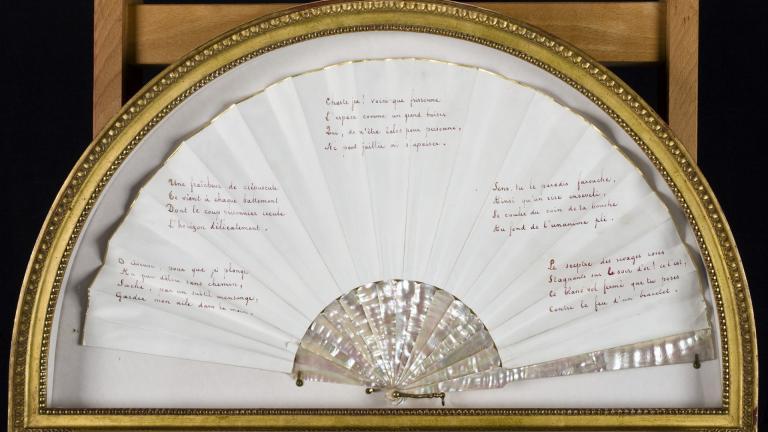 O rêveuse, pour que je plonge
Au pur délice sans chemin,
Sache, par un subtil mensonge,
Garder mon aile dans ta main.
Une fraîcheur de crépuscule
Te vient à chaque battement
Dont le coup prisonnier recule
L'horizon délicatement.
Chaste jeu! voici que frissonne
L'espace comme un grand baiser
Qui, de n'être éclos pour personne,
Ne peut jaillir ni s'apaiser.
Sens-tu le paradis farouche,
Ainsi qu'un rire enseveli,
Se couler du coin de ta bouche
Au fond de l'unanime pli.
Le sceptre des rivages roses
Stagnants sur le soir d'or! ce l'est,
Ce blanc vol fermé que tu poses
Contre le feu d'un bracelet.